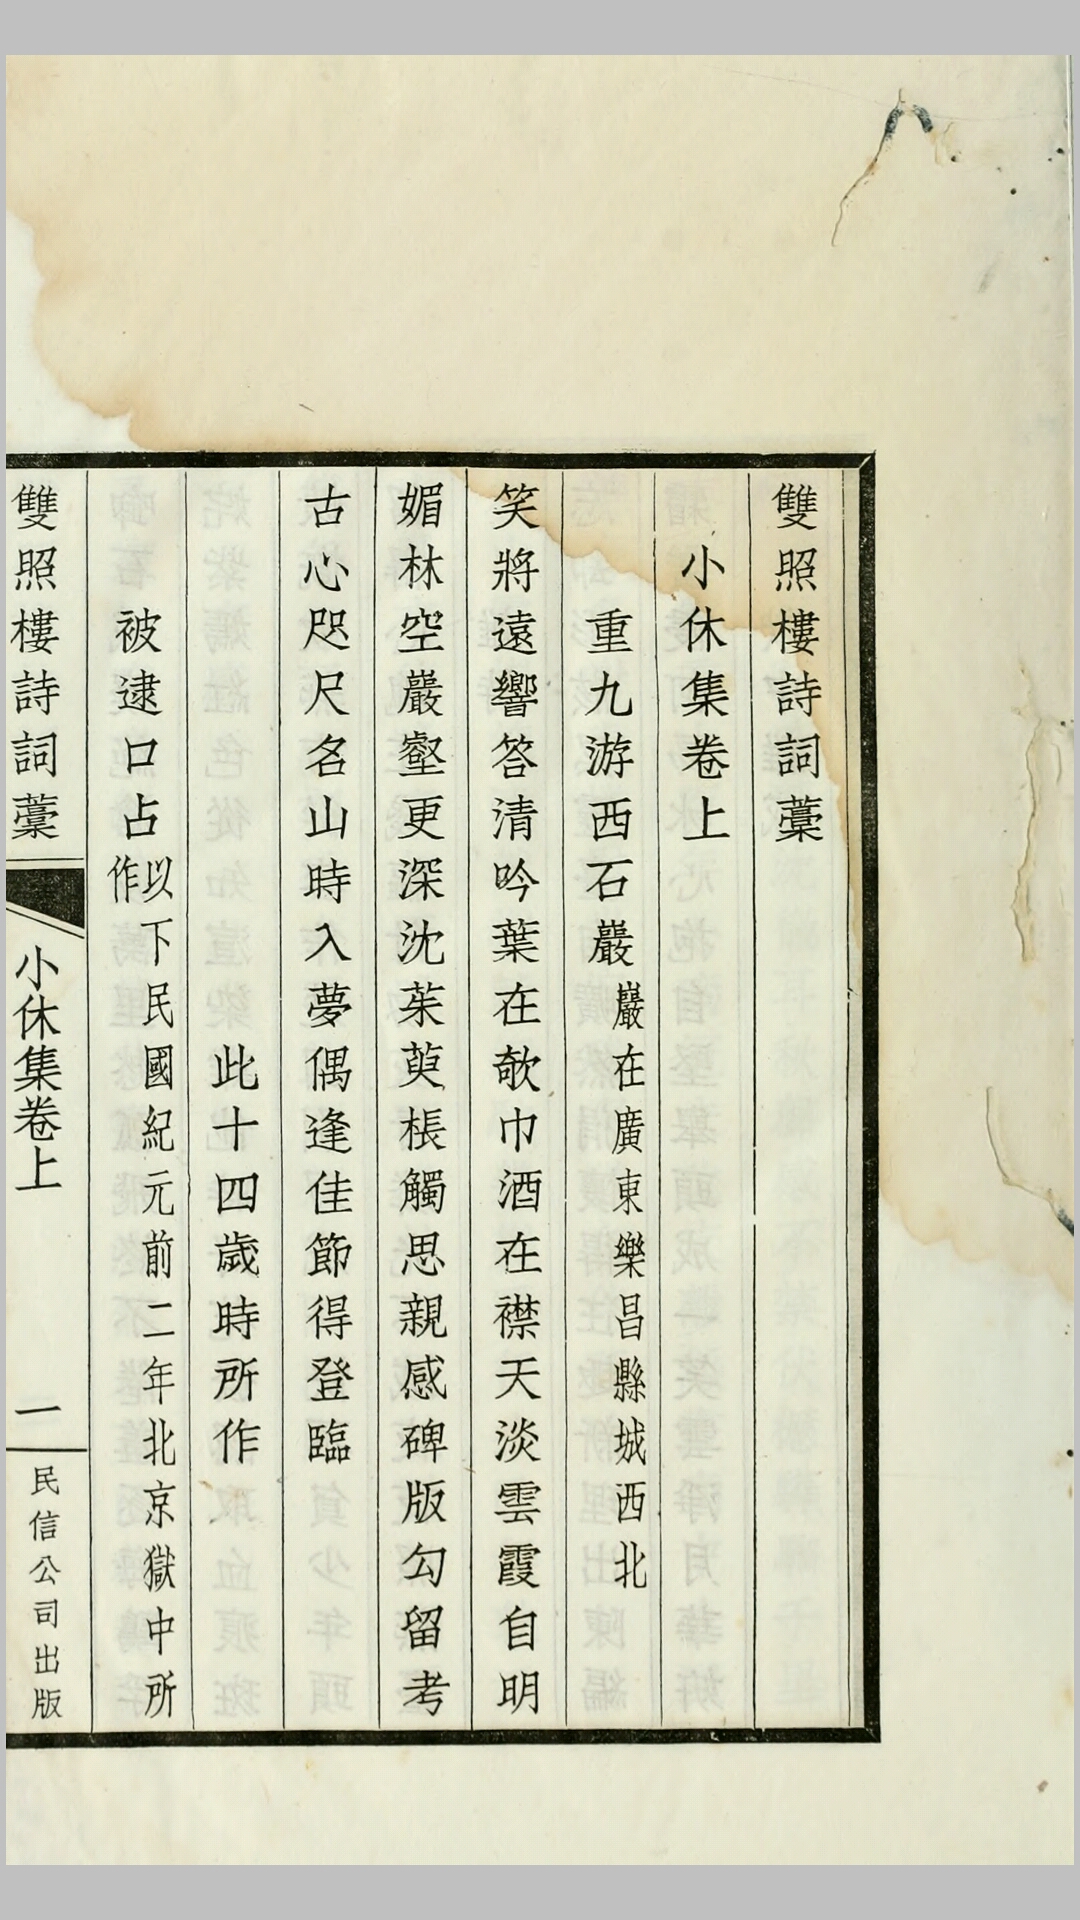 雙照樓詩詞藁
小休集卷上
重九游西石巖巖在廣東樂昌縣城西北
笑將遠響答清吟葉在欹巾酒在襟天淡雲霞自明
媚林空巖壑更深沈茱萸棖觸思親感碑版勾留考
古心咫尺名山時入夢偶逢佳節得登臨
此十四歲時所作
被逮口占以下民國紀元前二年北京獄中所作
雙照樓詩詞藁 小休集卷上 一 民信公司出版